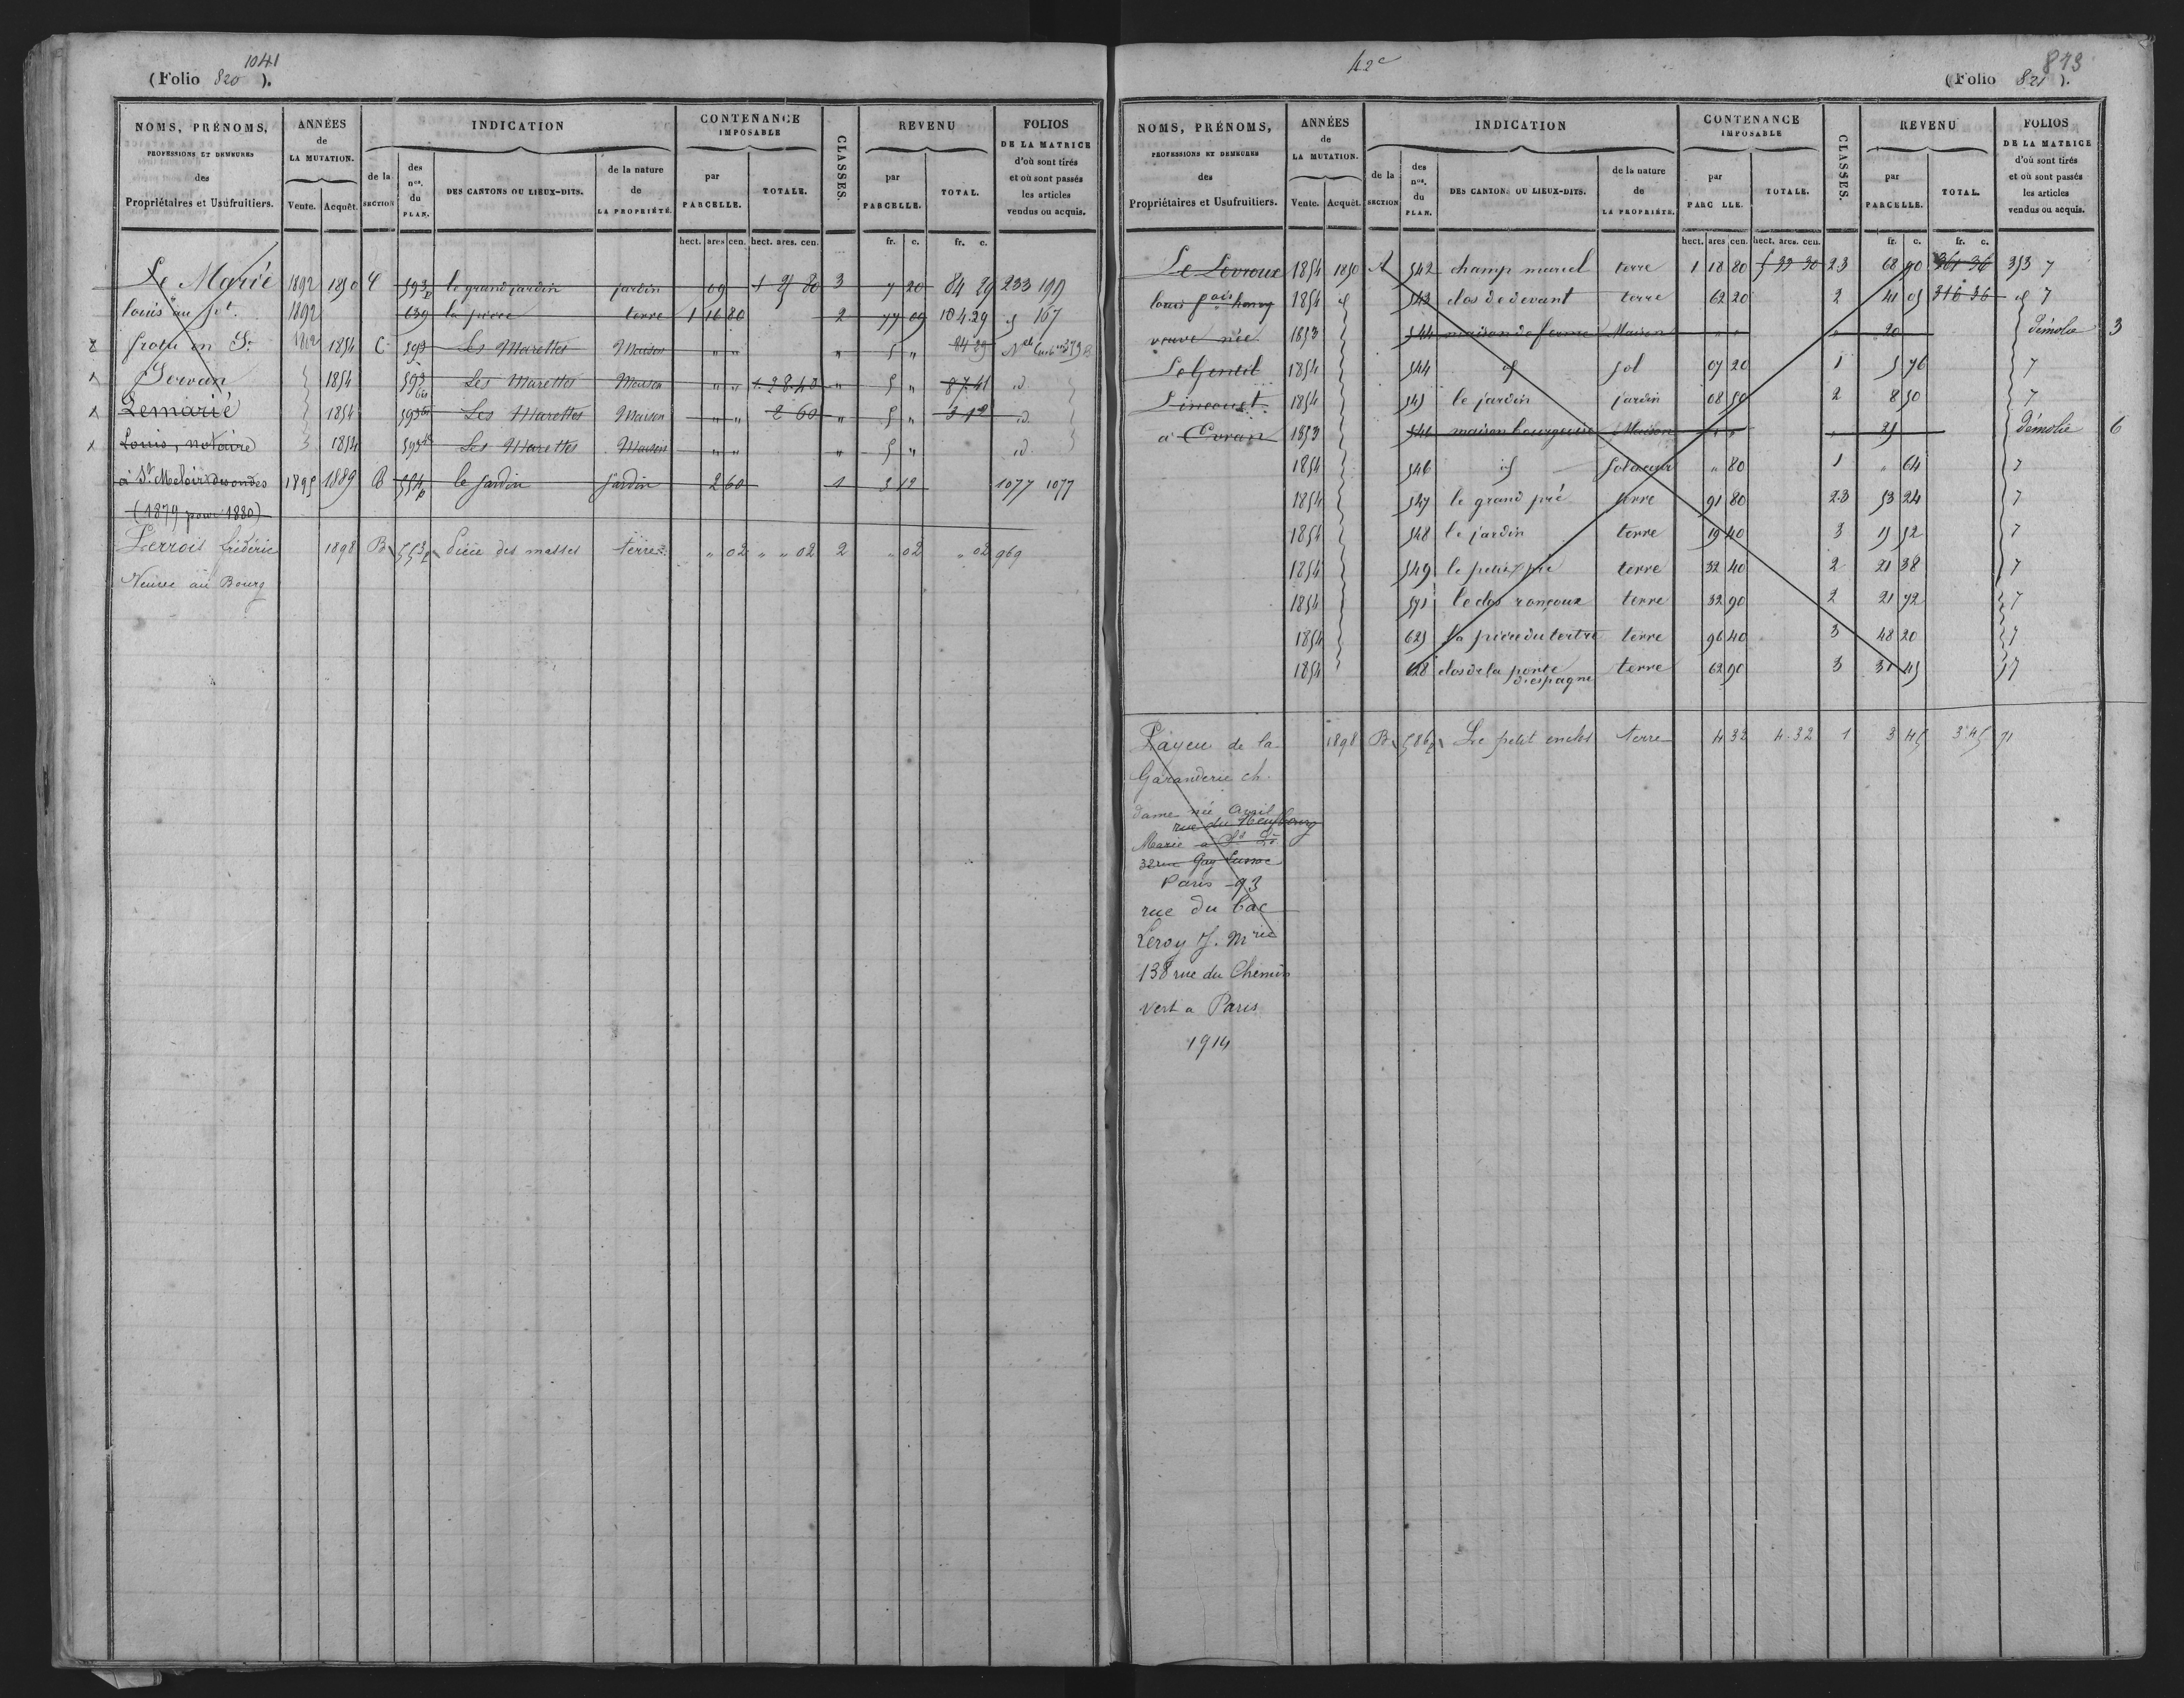 1041
(Folio 820 ).
NOMS, PRÉNOMS, PROFESSIONS ET DEMEURES des Propriétaires et Usufruitiers.
ANNÉES de LA MUTATION. Vente. Acquêt.
INDICATION de la SECTION des nos. du PLAN. DES CANTONS OU LIEUX-DITS. de la nature de LA PROPRIÉTÉ.
CONTENANCE IMPOSABLE par PARCELLE. TOTALE.
CLASSES.
REVENU par PARCELLE. TOTAL.
FOLIOS DE LA MATRICE d'où sont tirés et où sont passés les articles vendus ou acquis.
hect. ares cen. hect. ares. cen. fr. c. fr. c.
Le Marié 1892 1850 C 593p le grand jardin jardin 09 1 25 80 3 7 20 84 29 233 199
louis au pt. 1892 639 la pièce terre 1 16 80 2 77 09 104.29 id 167
1854 C 593 Les Marettes Maison " " " 5 " 84 29
Servan 1854 593 bis Les Marettes Maison " " 1.28.40 " 5 " 87.41 id
Lemarié 1854 593 Les Marettes Maison " " 2 60 " 5 " 3 12 id
Louis, notaire 1854 593 Les Marettes Maison " " " 5 " id
à St Meloir des ondes 1895 1889 B 554p le Jardin Jardin 2 60 1 3 12 1077 1077
(1879 pour 1880)
Lerrois Frédéric 1898 B 553p Pièce des masses terre " 02 " " 02 2 " 02 " 02 969
Veuve au Bourg
42e
873
(Folio 821 ).
NOMS, PRÉNOMS, PROFESSIONS ET DEMEURES des Propriétaires et Usufruitiers.
ANNÉES de LA MUTATION. Vente. Acquêt.
INDICATION de la SECTION des nos. du PLAN. DES CANTONS OU LIEUX-DITS. de la nature de LA PROPRIÉTÉ.
CONTENANCE IMPOSABLE par PARC LLE. TOTALE.
CLASSES.
REVENU par PARCELLE. TOTAL.
FOLIOS DE LA MATRICE d'où sont tirés et où sont passés les articles vendus ou acquis.
hect. ares cen. hect. ares. cen. fr. c. fr. c.
Le Levroux 1854 1850 A 542 champ muriel terre 1 18 80 5 33 30 2.3 68 90 361 36 353 7
louis fçois henry 1854 id 543 clos de devant terre 62 20 2 41 05 316 36 id 7
veuve née 1853 544 maison de ferme Maison " " " 20 démolie 3
Le Gentil 1854 544 id sol 07 20 1 5 76 7
1854 545 le jardin jardin 08 50 2 8 50 7
à Evran 1853 546 maison bourgeoise Maison " " " 25 démolie 6
1854 546 id sol et cour " 80 1 " 64 7
1854 547 le grand pré terre 91 80 2.3 53 24 7
1854 548 le jardin terre 19 40 3 15 52 7
1854 549 le petit pré terre 32 40 2 21 38 7
1854 571 le clos ronçoux terre 32 90 2 21 72 7
1854 625 la pièce du tertre terre 96 40 3 48 20 7
1854 628 clos de la porte d'espagne terre 62 90 3 31 45 7
Payen de la 1898 B 586p Le petit enclos terre 4 32 4.32 1 3 45 3 45 71
Garanderie ch.
dame née Avril
rue du Neufbourg
Marie à St Lo
32 rue Gay Lussac
Paris 93
rue du bac
Leroy J. Mrie
138 rue du Chemin
vert a Paris
1914